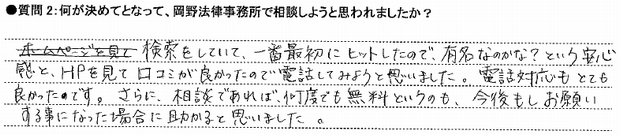 ●質問2:何が決めてとなって、岡野法律事務所で相談しようと思われましたか？
ホームページを見て 検索をしていて、一番最初にヒットしたので、有名なのかな？という安心
感と、HPを見て口コミが良かったので電話してみようと思いました。電話対応もとても
良かったのです。さらに、相談であれば、何度でも無料というのも、今後もしお願い
する事になった場合に助かると思いました。